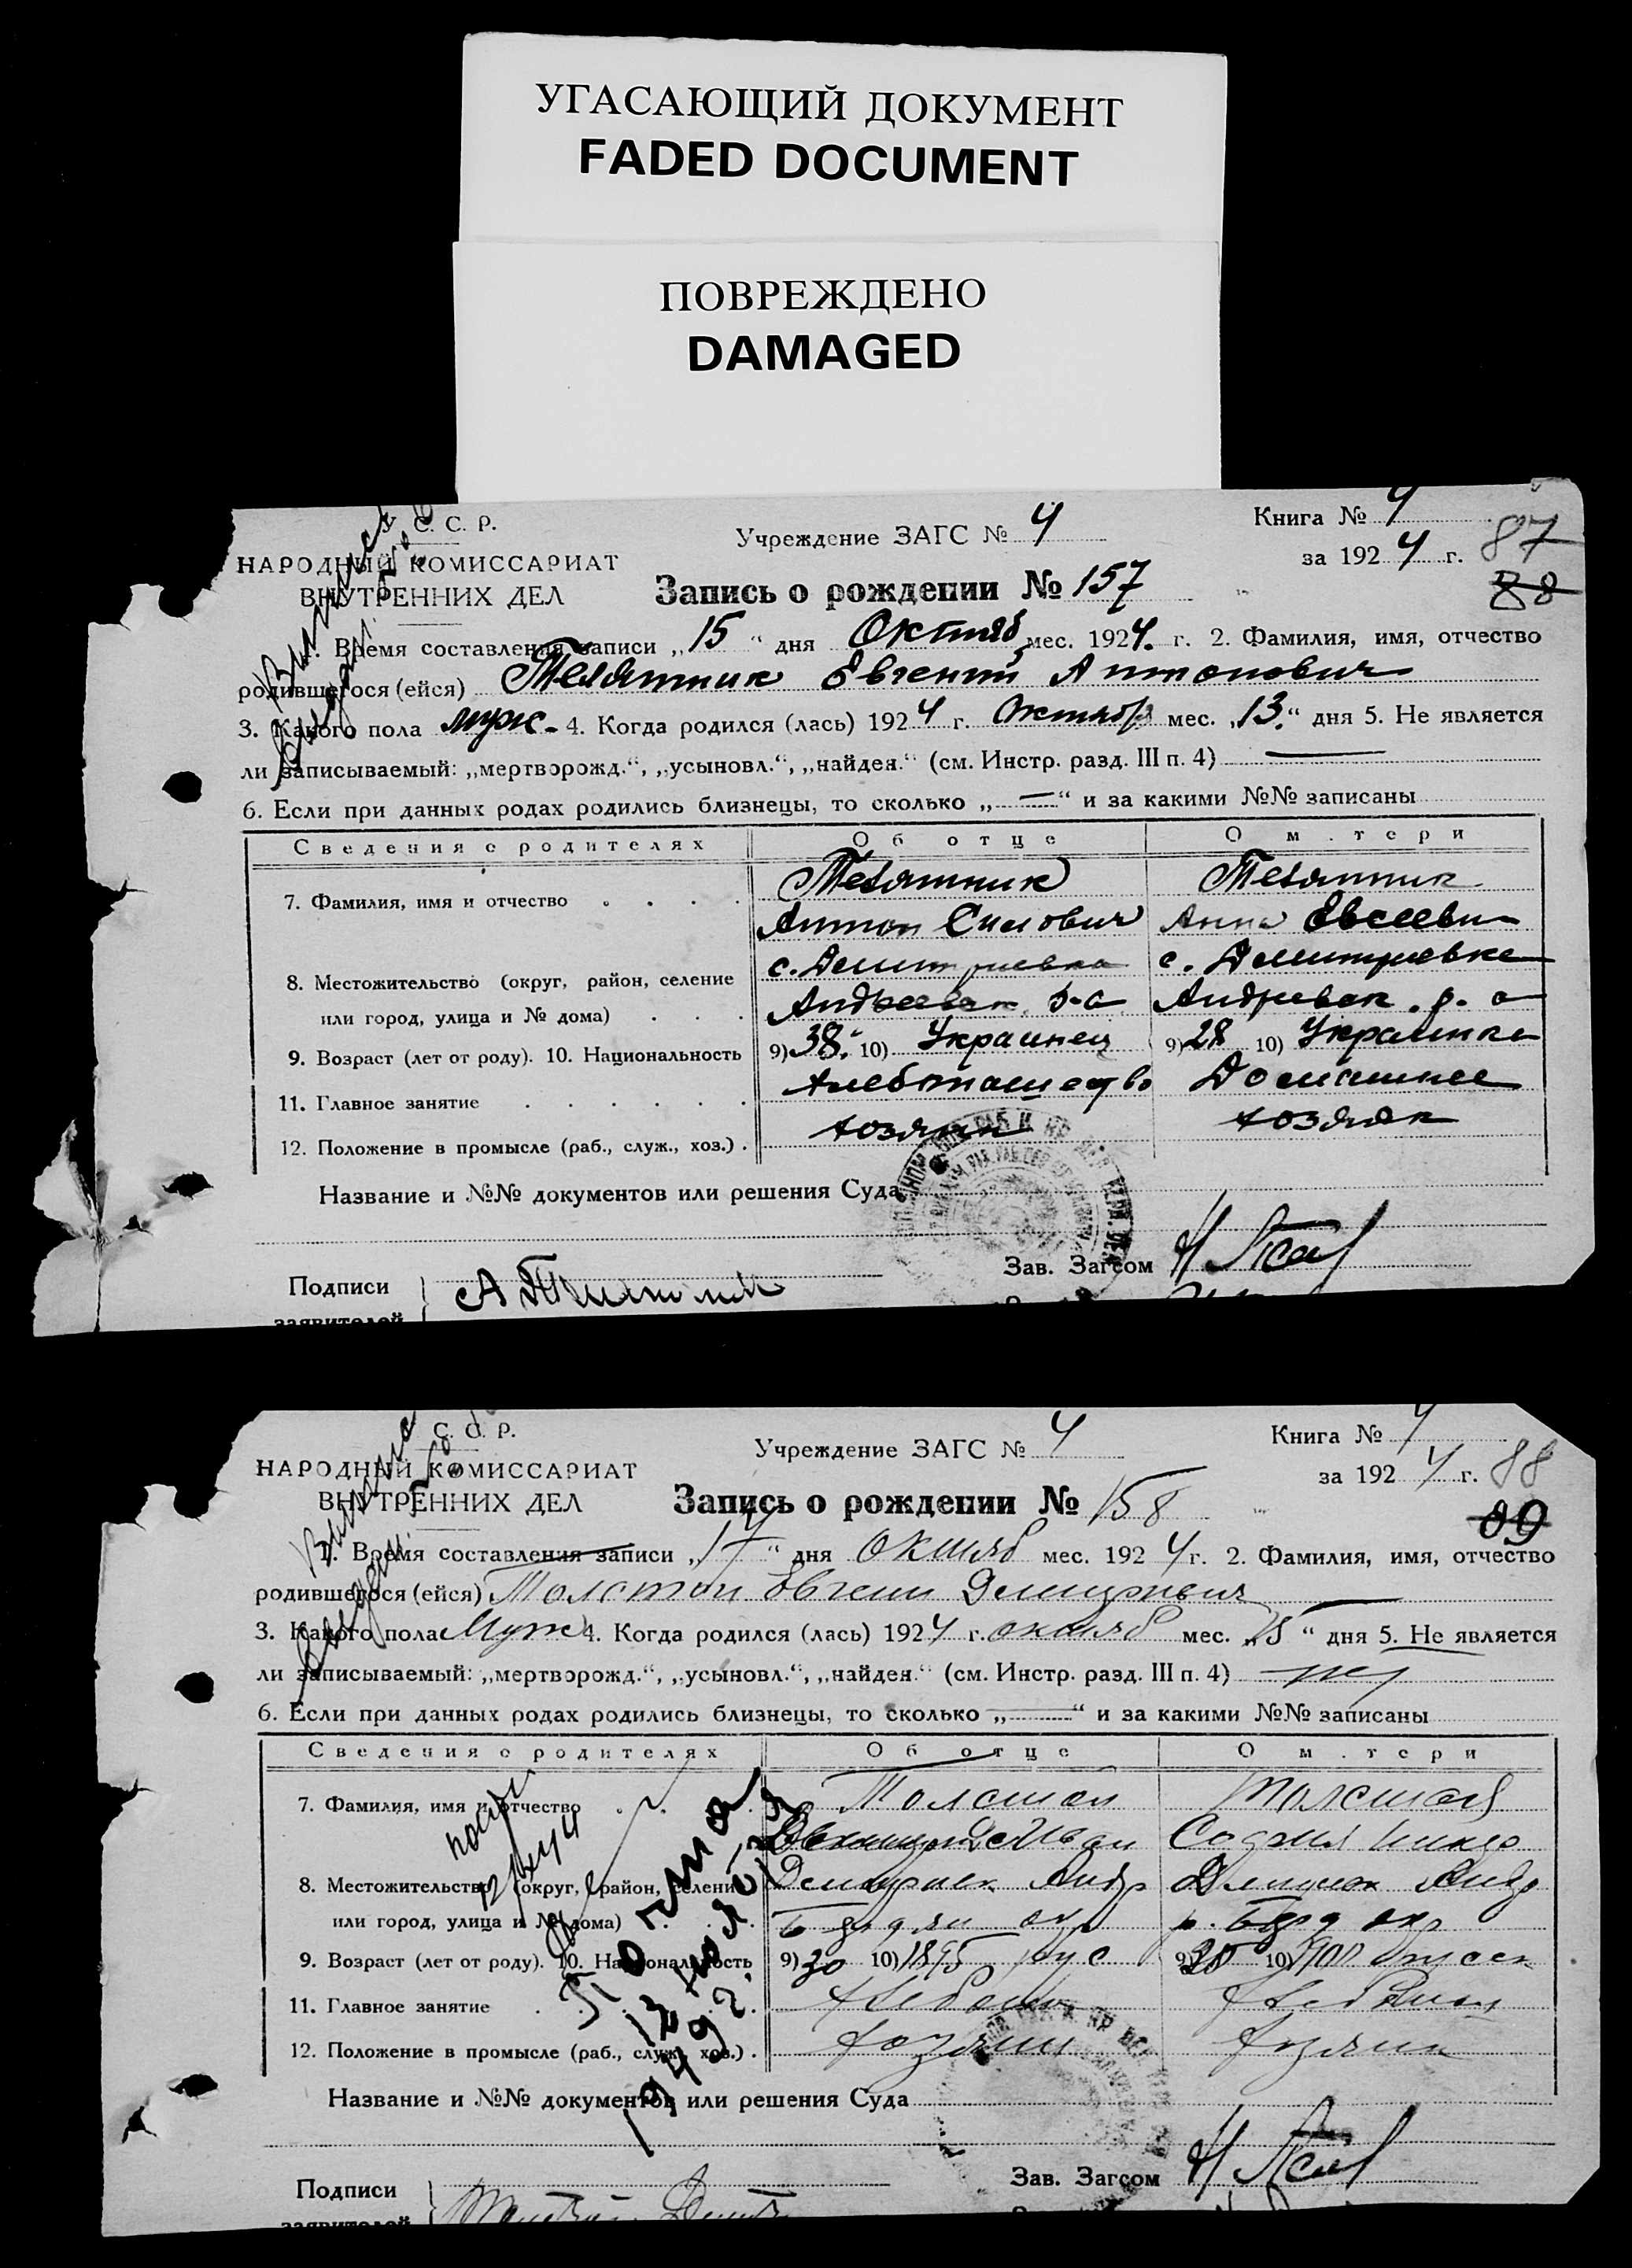 УГАСАЮЩИЙ ДОКУМЕНТ
FADED DOCUMENT
ПОВРЕЖДЕНО
DAMAGED
С. С. Р.
НАРОДНЫЙ КОМИССАРИАТ
ВНУТРЕННИХ ДЕЛ
Учреждение ЗАГС № 4
Книга № 4
за 1924 г. 87
88
Запись о рождении № 157
1. Время составления записи „15“ дня Октяб мес. 1924. г. 2. Фамилия, имя, отчество
родившегося (ейся) Телятник Евгений Антонович
3. Какого пола муж- 4. Когда родился (лась) 1924 г. Октябр мес. „13.“ дня 5. Не является
ли записываемый: „мертворожд.“, „усыновл.“, „найден.“ (см. Инстр. разд. III п. 4) —
6. Если при данных родах родились близнецы, то сколько „—“ и за какими №№ записаны
Сведения о родителях Об отце О м.тери
7. Фамилия, имя и отчество Телятник Телятник
Антон Силович Анна Евсеевн
8. Местожительство (округ, район, селение с. Дмитриевка с. Дмитриевка
или город, улица и № дома) Андреевск. р-а Андревск. р. а
9. Возраст (лет от роду). 10. Национальность 9) 38. 10) Украинец 9) 28 10) Украинка
11. Главное занятие Хлебопашество Домашнее
12. Положение в промысле (раб., служ., хоз.) хозяин хозяяк
Название и №№ документов или решения Суда
Подписи
заявителей
Зав. Загсом
С. С. Р.
НАРОДНЫЙ КОМИССАРИАТ
ВНУТРЕННИХ ДЕЛ
Учреждение ЗАГС № 4
Книга № 4
за 1924 г. 88
89
Запись о рождении № 158
1. Время составления записи „17“ дня Октяб мес. 1924 г. 2. Фамилия, имя, отчество
родившегося (ейся) Толстой Евгени Демитриевич
3. Какого пола Муж 4. Когда родился (лась) 1924 г. октяб мес. „15“ дня 5. Не является
ли записываемый: „мертворожд.“, „усыновл.“, „найден.“ (см. Инстр. разд. III п. 4)
6. Если при данных родах родились близнецы, то сколько „—“ и за какими №№ записаны
Сведения о родителях Об отце О м.тери
7. Фамилия, имя и отчество Толстой Толстая
8. Местожительство (округ, район, селение
или город, улица и № дома)
9. Возраст (лет от роду). 10. Национальность 9) 30 10) 1895 рус 9) 10)
11. Главное занятие
12. Положение в промысле (раб., служ., хоз.) хозяин хозяин
Название и №№ документов или решения Суда
Подписи
заявителей
Зав. Загсом